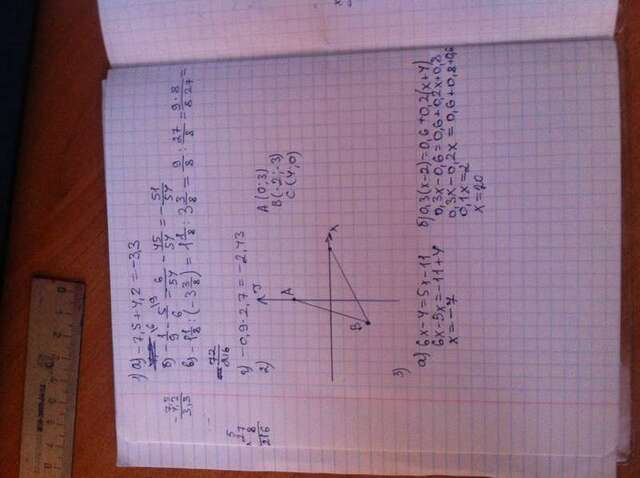 1) а) -7,5 + 4,2 = -3,3
б) -1/9 - 5/6 = -6/54 - 45/54 = -51/54
7,5
- 4,2
3,3
в) -1 1/8 : (-3 3/8) = 1 1/8 : 3 3/8 = 9/8 : 27/8 = 9·8/8·27 =
= 72/216
5
27
× 8
216
г) -0,9·2,7 = -2,43
2)
y
A
B
x
A (0;3)
B (-2;-3)
C (4;0)
3)
а) 6x-4=5x-11
6x-5x=-11+4
x=-7
б) 0,3(x-2)=0,6+0,2(x+4)
0,3x-0,6=0,6+0,2x+0,8
0,3x-0,2x=0,6+0,8+0,6
0,1x=2
x=20